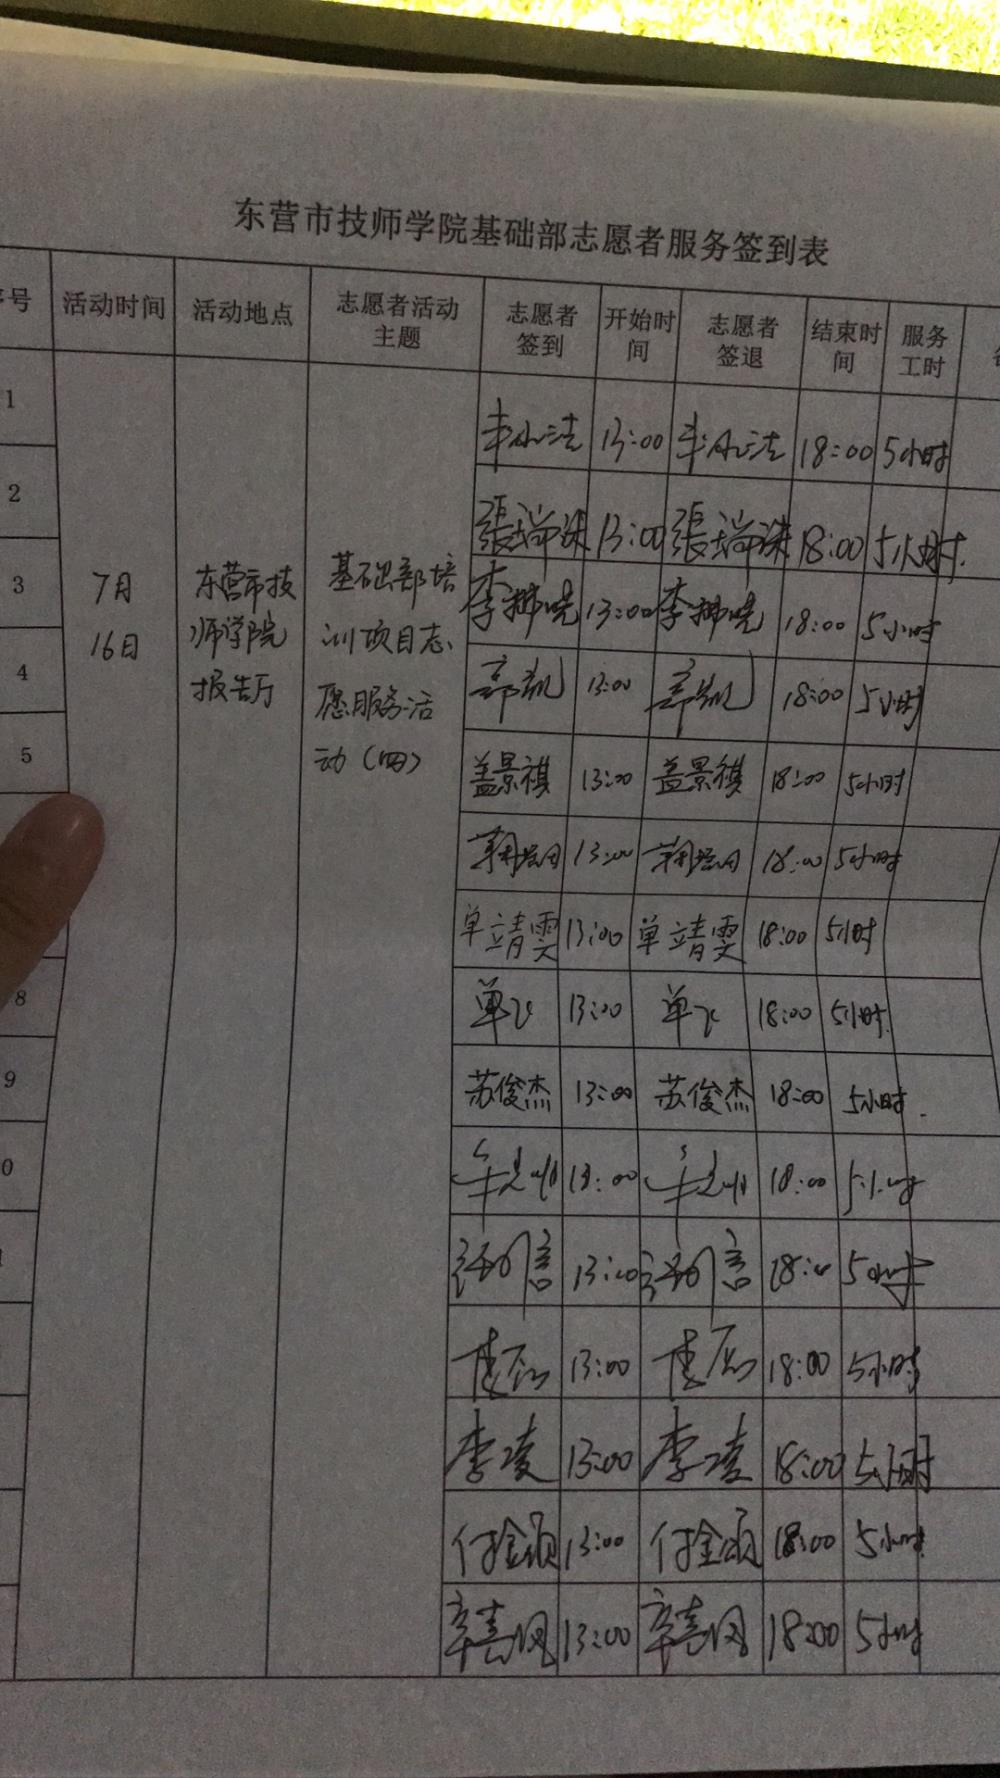 东营市技师学院基础部志愿者服务签到表
号 活动时间 活动地点 志愿者活动主题 志愿者签到 开始时间 志愿者签退 结束时间 服务工时
7月
16日
东营市技
师学院
报告厅
基础部培
训项目志
愿服务活
动(四)
1 13:00 18:00 5小时
2 張瑞 13:00 張瑞 18:00 5小时.
3 李 13:00 李 18:00 5小时
4 郭凯 13:00 郭凯 18:00 5小时
5 盖景祺 13:00 盖景祺 18:00 5小时
13:00 18:00 5小时
单靖雯 13:00 单靖雯 18:00 5小时
8 单飞 13:00 单飞 18:00 5小时.
9 苏俊杰 13:00 苏俊杰 18:00 5小时.
0 13:00 18:00 5小时
13:00 18:00 5小时
13:00 18:00 5小时
李凌 13:00 李凌 18:00 5小时
付金颂 13:00 付金颂 18:00 5小时
13:00 18:00 5小时